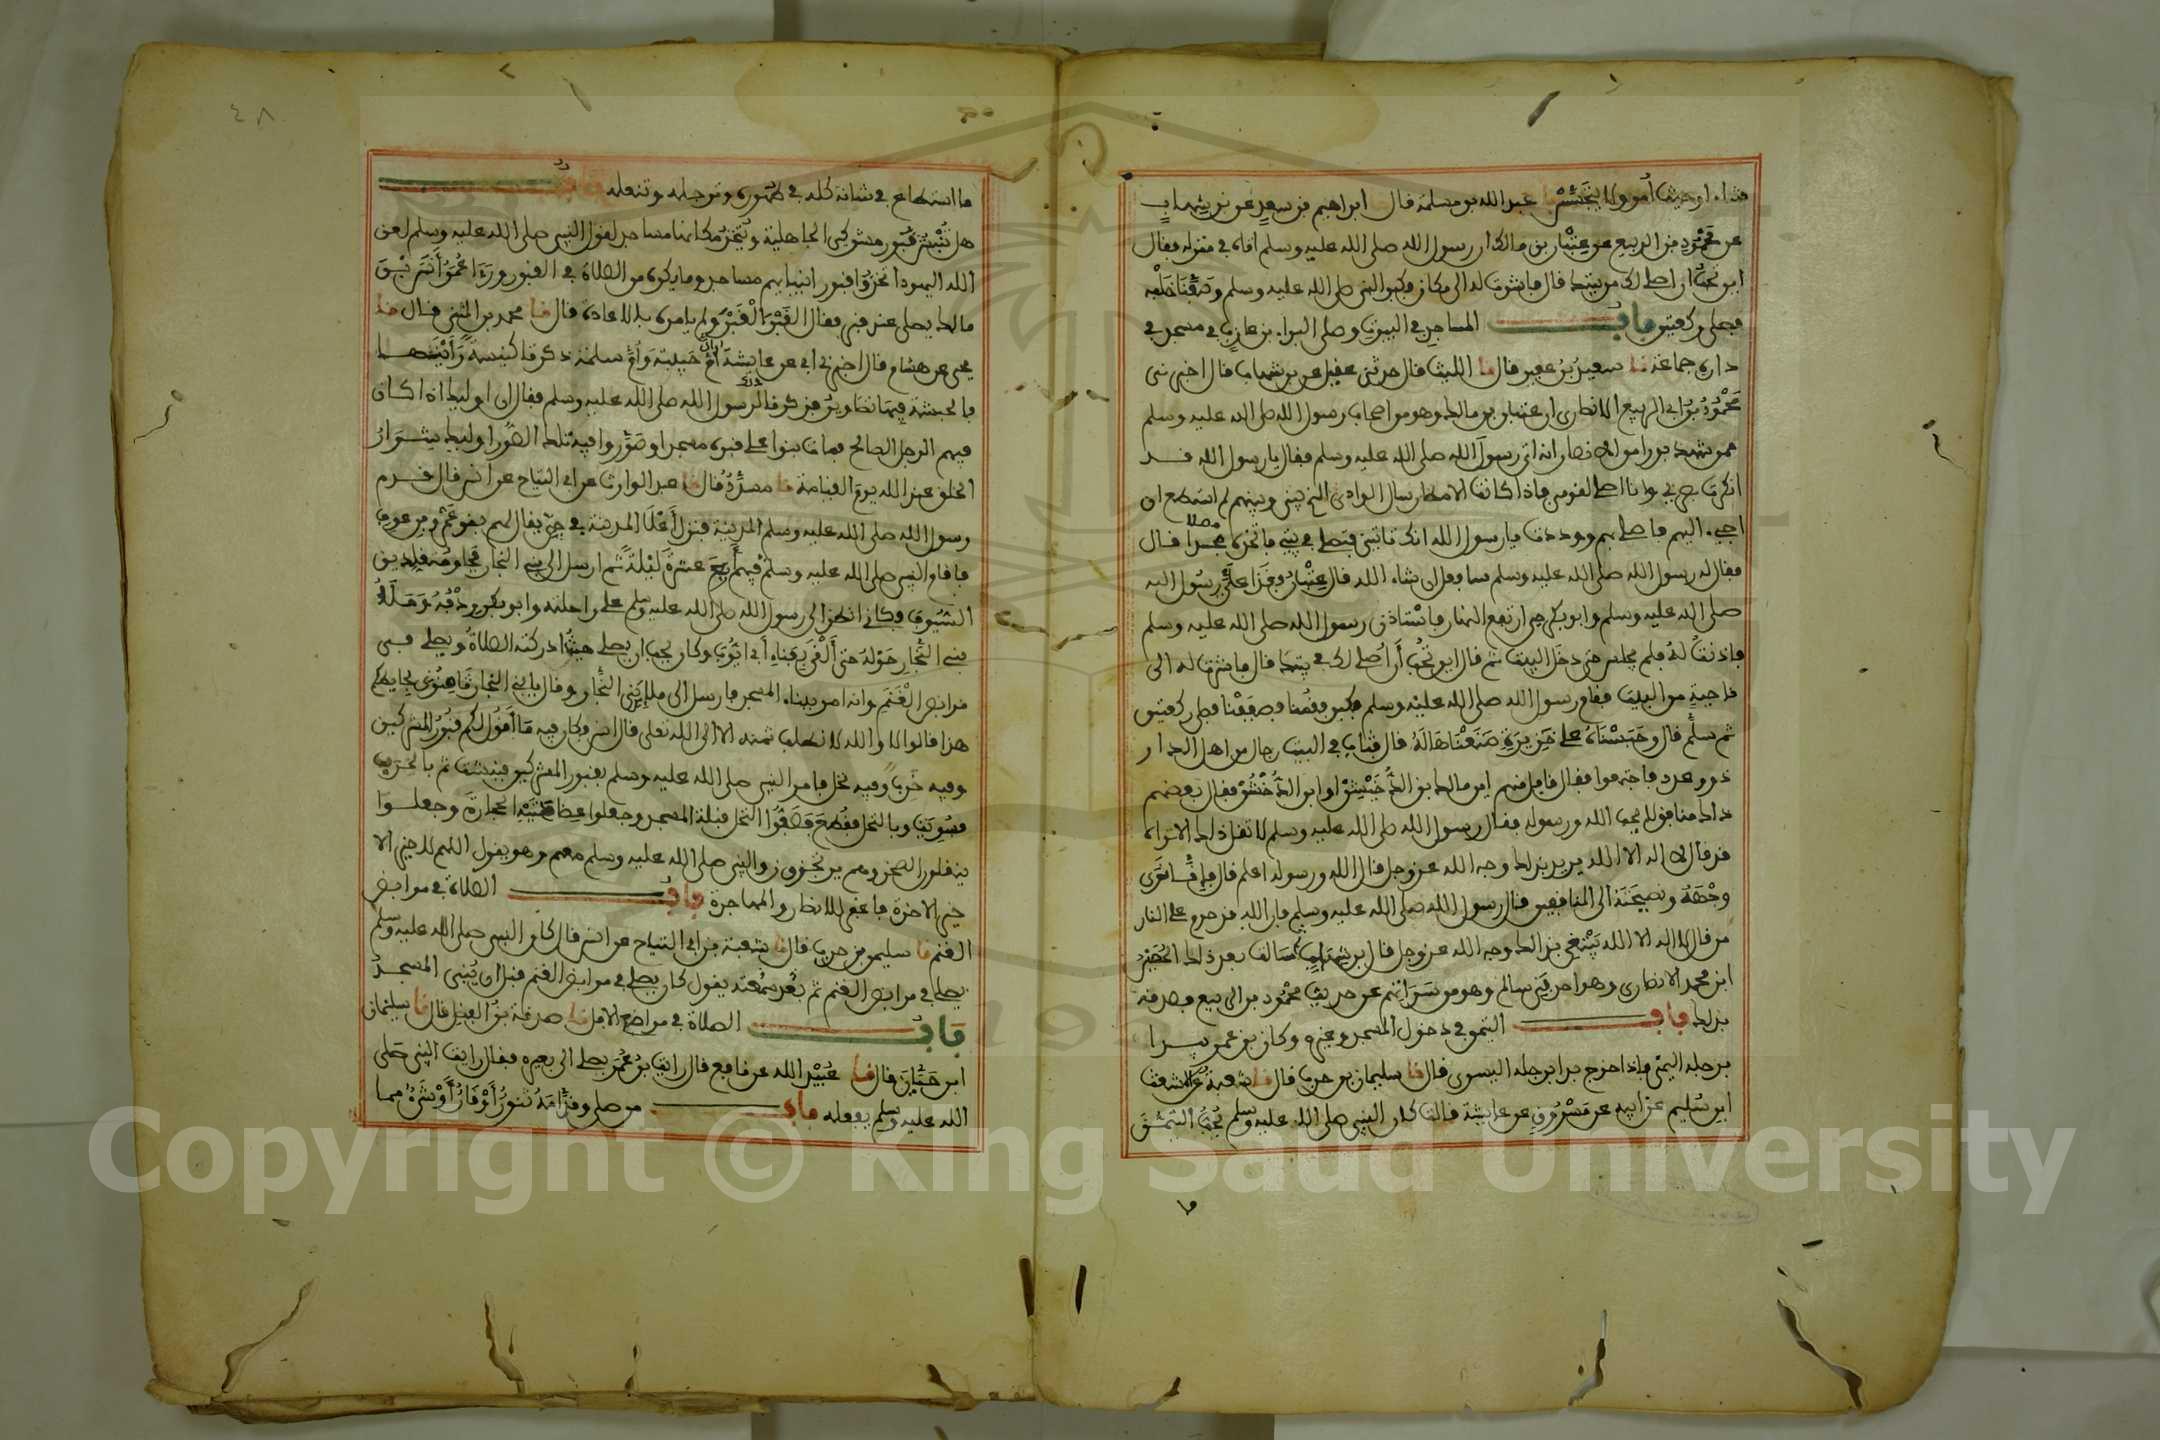 شاء او حيث أمر ولا يتجسس نا عبد الله بن مسلمة قال ابراهيم بن سعد عن بن شهاب
عن محمود بن الربيع عن عتبان بن مالك ان رسول الله صلى الله عليه وسلم اتاه في منزله فقال
اين تحب ان اصلي لك من بيتك قال فاشرت له الى مكان فكبر النبي صلى الله عليه وسلم وصففنا خلفه
فصلى ركعتين باب المساجد في البيوت وصلى البراء بن عازب في مسجد في
داره جماعة نا سعيد بن عفير قال نا الليث قال حدثني عقيل عن بن شهاب قال اخبرني
محمود بن الربيع الانصاري ان عتبان بن مالك وهو من اصحاب رسول الله صلى الله عليه وسلم
ممن شهد بدرا من الانصار انه اتى رسول الله صلى الله عليه وسلم فقال يا رسول الله قد
انكرت بصري وانا اصلي لقومي فاذا كانت الامطار سال الوادي الذي بيني وبينهم لم استطع ان
اجيء اليهم فاصلي بهم وددت يا رسول الله انك تاتيني فتصلي في بيتي فاتخذه مصلا قال
فقال له رسول الله صلى الله عليه وسلم سافعل ان شاء الله قال عتبان فغدا علي رسول الله
صلى الله عليه وسلم وابو بكر حين ارتفع النهار فاستاذن رسول الله صلى الله عليه وسلم
فاذنت له فلم يجلس حتى دخل البيت ثم قال اين تحب أن أصلي لك في بيتك قال فاشرت له الى
ناحية من البيت فقام رسول الله صلى الله عليه وسلم فكبر فقمنا فصففنا فصلى ركعتين
ثم سلم قال وحبسناه على خزيرة صنعناها له قال فثاب في البيت رجال من اهل الدار
ذوو عدد فاجتمعوا فقال قائل منهم اين مالك بن الدخيشن او ابن الدخشن فقال بعضهم
ذاك منافق لا يحب الله ورسوله فقال رسول الله صلى الله عليه وسلم لا تقل ذلك الا تراه
قد قال لا اله الا الله يريد بذلك وجه الله عز وجل قال الله ورسوله اعلم قال فإنا نرى
وجهه ونصيحته الى المنافقين قال رسول الله صلى الله عليه وسلم فان الله قد حرم على النار
من قال لا اله الا الله يبتغي بذلك وجه الله عز وجل قال ابن شهاب ثم سالت بعد ذلك الحصين
ابن محمد الانصاري وهو احد بني سالم وهو من سراتهم عن حديث محمود بن الربيع فصدقه
بذلك باب التيمن في دخول المسجد وغيره وكان بن عمر يبدا
برجله اليمنى فاذا خرج بدا برجله اليسرى قال نا سليمان بن حرب قال نا شعبة عن الاشعث
ابن سليم عن ابيه عن مسروق عن عايشة قالت كان النبي صلى الله عليه وسلم يحب التيمن
ما
ما استطاع في شانه كله في طهوره وترجله وتنعله باب
هل تنبش قبور مشركي الجاهلية ويتخذ مكانها مساجد لقول النبي صلى الله عليه وسلم لعن
الله اليهود اتخذوا قبور انبيايهم مساجد وما يكره من الصلاة في القبور ورءا عمر أنس بن
مالك يصلي عند قبر فقال القبر القبر ولم يامره بالاعادة قال نا محمد بن المثنى قال نا
يحيى عن هشام قال اخبرني ابي عن عايشة أن أم حبيبة وأم سلمة ذكرتا كنيسة رأينها
بالحبشة فيها تصاوير فذكرتا لرسول الله صلى الله عليه وسلم فقال ان اوليك اذا كان
فيهم الرجل الصالح فمات بنوا على قبره مسجدا وصوروا فيه تلك الصور اوليك شرار
الخلق عند الله يوم القيامة نا مسدد قال نا عبد الوارث عن ابي التياح عن أنس قال قدم
رسول الله صلى الله عليه وسلم المدينة فنزل أعلا المدينة في حي يقال لهم بنو عمرو بن عوف
فاقام النبي صلى الله عليه وسلم فيهم أربع عشرة ليلة ثم ارسل الى بني النجار فجاوه متقلدين
السيوف فكاني انظر الى رسول الله صلى الله عليه وسلم على راحلته وابو بكر ردفه وملأ
بني النجار حوله حتى ألقى بفناء أبي ايوب وكان يحب ان يصلي حيث ادركته الصلاة ويصلي في
مرابض الغنم وانه امر ببناء المسجد فارسل الى ملإ بني النجار وقال يا بني النجار ثامنوني بحايطكم
هذا قالوا لا والله لا نطلب ثمنه الا الى الله تعلى قال انس فكان فيه ما أقول لكم قبور المشركين
وفيه خرب وفيه نخل فامر النبي صلى الله عليه وسلم بقبور المشركين فنبشت ثم بالخرب
فسويت وبالنخل فقطع فصفوا النخل قبلة المسجد وجعلوا عضادتيه الحجارة وجعلوا
ينقلون الصخر وهم يرتجزون والنبي صلى الله عليه وسلم معهم وهو يقول اللهم لا خير الا
خير الاخرة فاغفر للانصار والمهاجرة باب الصلاة في مرابض
الغنم نا سليمن بن حرب قال نا شعبة عن ابي التياح عن انس قال كان النبي صلى الله عليه وسلم
يصلي في مرابض الغنم ثم بعد سمعته يقول كان يصلي في مرابض الغنم قبل ان يبنى المسجد
باب الصلاة في مواضع الابل نا صدقة بن الفضل قال نا سليمان
ابن حيان قال نا عبيد الله عن نافع قال رايت بن عمر يصلي الى بعيره فقال رايت النبي صلى
الله عليه وسلم يفعله باب من صلى وقدامه تنور أو نار أو شيء مما
٤٨
Copyright © King Saud University